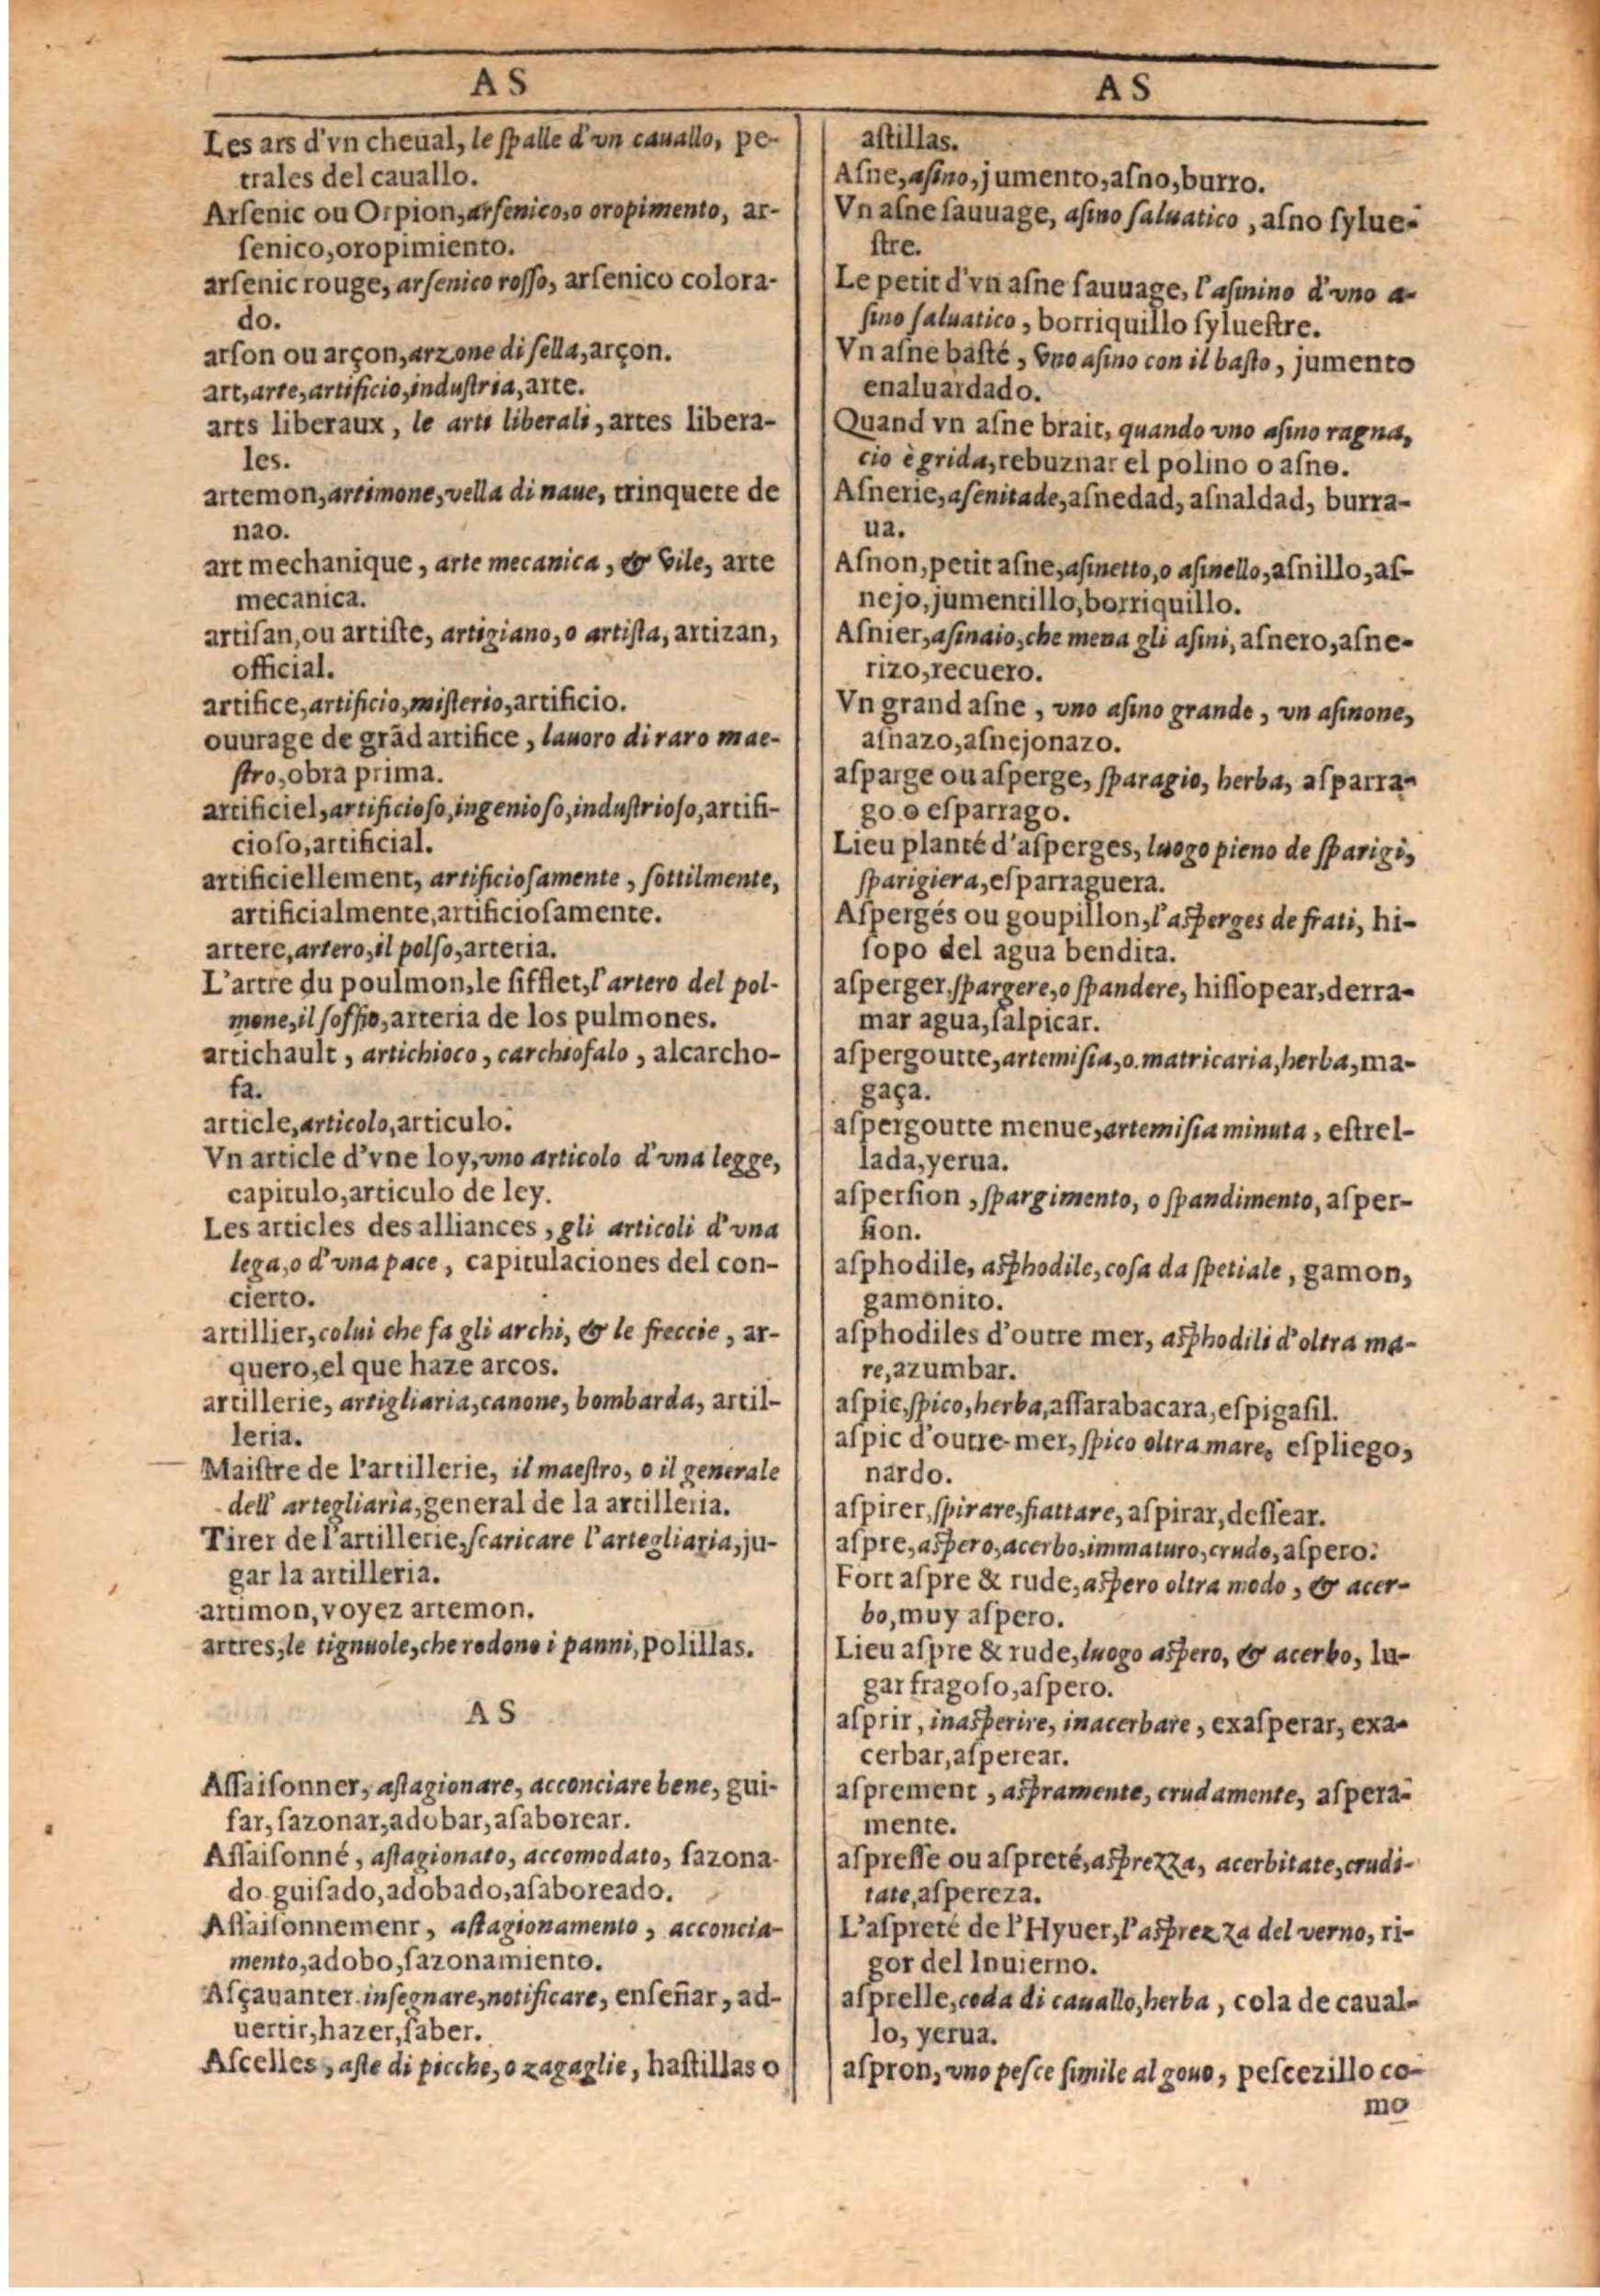 AS
Les ars d'vn cheual, le ſpalle d'vn cauallo, pe-
trales del cauallo.
Arſenic ou Orpion, arſenico, o oropimento, ar-
ſenico, oropimiento.
arſenic rouge, arſenico roſſo, arſenico colora-
do.
arſon ou arçon, arzone di ſella, arçon.
art, arte, artificio, induſtria, arte.
arts liberaux, le arti liberali, artes libera-
les.
artemon, artimone, vella di naue, trinquete de
nao.
art mechanique, arte mecanica, & vile, arte
mecanica.
artiſan, ou artiſte, artigiano, o artiſta, artizan,
official.
artifice, artificio, miſterio, artificio.
ouurage de grãd artifice, lauoro di raro mae-
ſtro, obra prima.
artificiel, artificioſo, ingenioſo, induſtrioſo, artifi-
cioſo, artificial.
artificiellement, artificioſamente, ſottilmente,
artificialmente, artificioſamente.
artere, artero, il polſo, arteria.
L'artre du poulmon, le ſifflet, l'artero del pol-
mone, il ſoffio, arteria de los pulmones.
artichault, artichioco, carchiofalo, alcarcho-
fa.
article, articolo, articulo.
Vn article d'vne loy, vno articolo d'vna legge,
capitulo, articulo de ley.
Les articles des alliances, gli articoli d'vna
lega, o d'vna pace, capitulaciones del con-
cierto.
artillier, colui che fa gli archi, & le freccie, ar-
quero, el que haze arcos.
artillerie, artigliaria, canone, bombarda, artil-
leria.
Maiſtre de l'artillerie, il maeſtro, o il generale
dell' artegliaria, general de la artilleria.
Tirer de l'artillerie, ſcaricare l'artegliaria, ju-
gar la artilleria.
artimon, voyez artemon.
artres, le tignuole, che rodono i panni, polillas.
AS
Aſſaiſonner, aſtagionare, acconciare bene, gui-
ſar, ſazonar, adobar, aſaborear.
Aſſaiſonné, aſtagionato, accomodato, ſazona-
do guiſado, adobado, aſaboreado.
Aſſaiſonnement, aſtagionamento, acconcia-
mento, adobo, ſazonamiento.
Aſçauanter inſegnare, notificare, enſeñar, ad-
uertir, hazer, ſaber.
Aſcelles, aſte di picche, o zagaglie, haſtillas o
AS
aſtillas.
Aſne, aſino, jumento, aſno, burro.
Vn aſne ſauuage, aſino ſaluatico, aſno ſylue-
ſtre.
Le petit d'vn aſne ſauuage, l'aſinino d'vno a-
ſino ſaluatico, borriquillo ſylueſtre.
Vn aſne baſté, vno aſino con il baſto, jumento
enaluardado.
Quand vn aſne brait, quando vno aſino ragna,
cio è grida, rebuznar el polino o aſno.
Aſnerie, aſenitade, aſnedad, aſnaldad, burra-
ua.
Aſnon, petit aſne, aſinetto, o aſinello, aſnillo, aſ-
nejo, jumentillo, borriquillo.
Aſnier, aſinaio, che mena gli aſini, aſnero, aſne-
rizo, recuero.
Vn grand aſne, vno aſino grande, vn aſinone,
aſnazo, aſnejonazo.
aſparge ou aſperge, ſparagio, herba, aſparra-
go o eſparrago.
Lieu planté d'aſperges, luogo pieno de ſparigi,
ſparigiera, eſparraguera.
Aſpergés ou goupillon, l'aſperges de frati, hi-
ſopo del agua bendita.
aſperger, ſpargere, o ſpandere, hiſſopear, derra-
mar agua, ſalpicar.
aſpergoutte, artemiſia, o matricaria, herba, ma-
gaça.
aſpergoutte menue, artemiſia minuta, eſtrel-
lada, yerua.
aſperſion, ſpargimento, o ſpandimento, aſper-
ſion.
aſphodile, aſphodile, coſa da ſpetiale, gamon,
gamonito.
aſphodiles d'outre mer, aſphodili d'oltra ma-
re, azumbar.
aſpic, ſpico, herba, aſſarabacara, eſpigaſil.
aſpic d'outre-mer, ſpico oltra mare, eſpliego,
nardo.
aſpirer, ſpirare, fiattare, aſpirar, deſſear.
aſpre, aſpero, acerbo, immaturo, crudo, aſpero.
Fort aſpre & rude, aſpero oltra modo, & acer-
bo, muy aſpero.
Lieu aſpre & rude, luogo aſpero, & acerbo, lu-
gar fragoſo, aſpero.
aſprir, inaſperire, inacerbare, exaſperar, exa-
cerbar, aſperear.
aſprement, aſpramente, crudamente, aſpera-
mente.
aſpreſſe ou aſpreté, aſprezza, acerbitate, crudi-
tate, aſpereza.
L'aſpreté de l'Hyuer, l'aſprezza del verno, ri-
gor del Inuierno.
aſprelle, coda di cauallo, herba, cola de caual-
lo, yerua.
aſpron, vno peſce ſimile al gouo, peſcezillo co-
mo